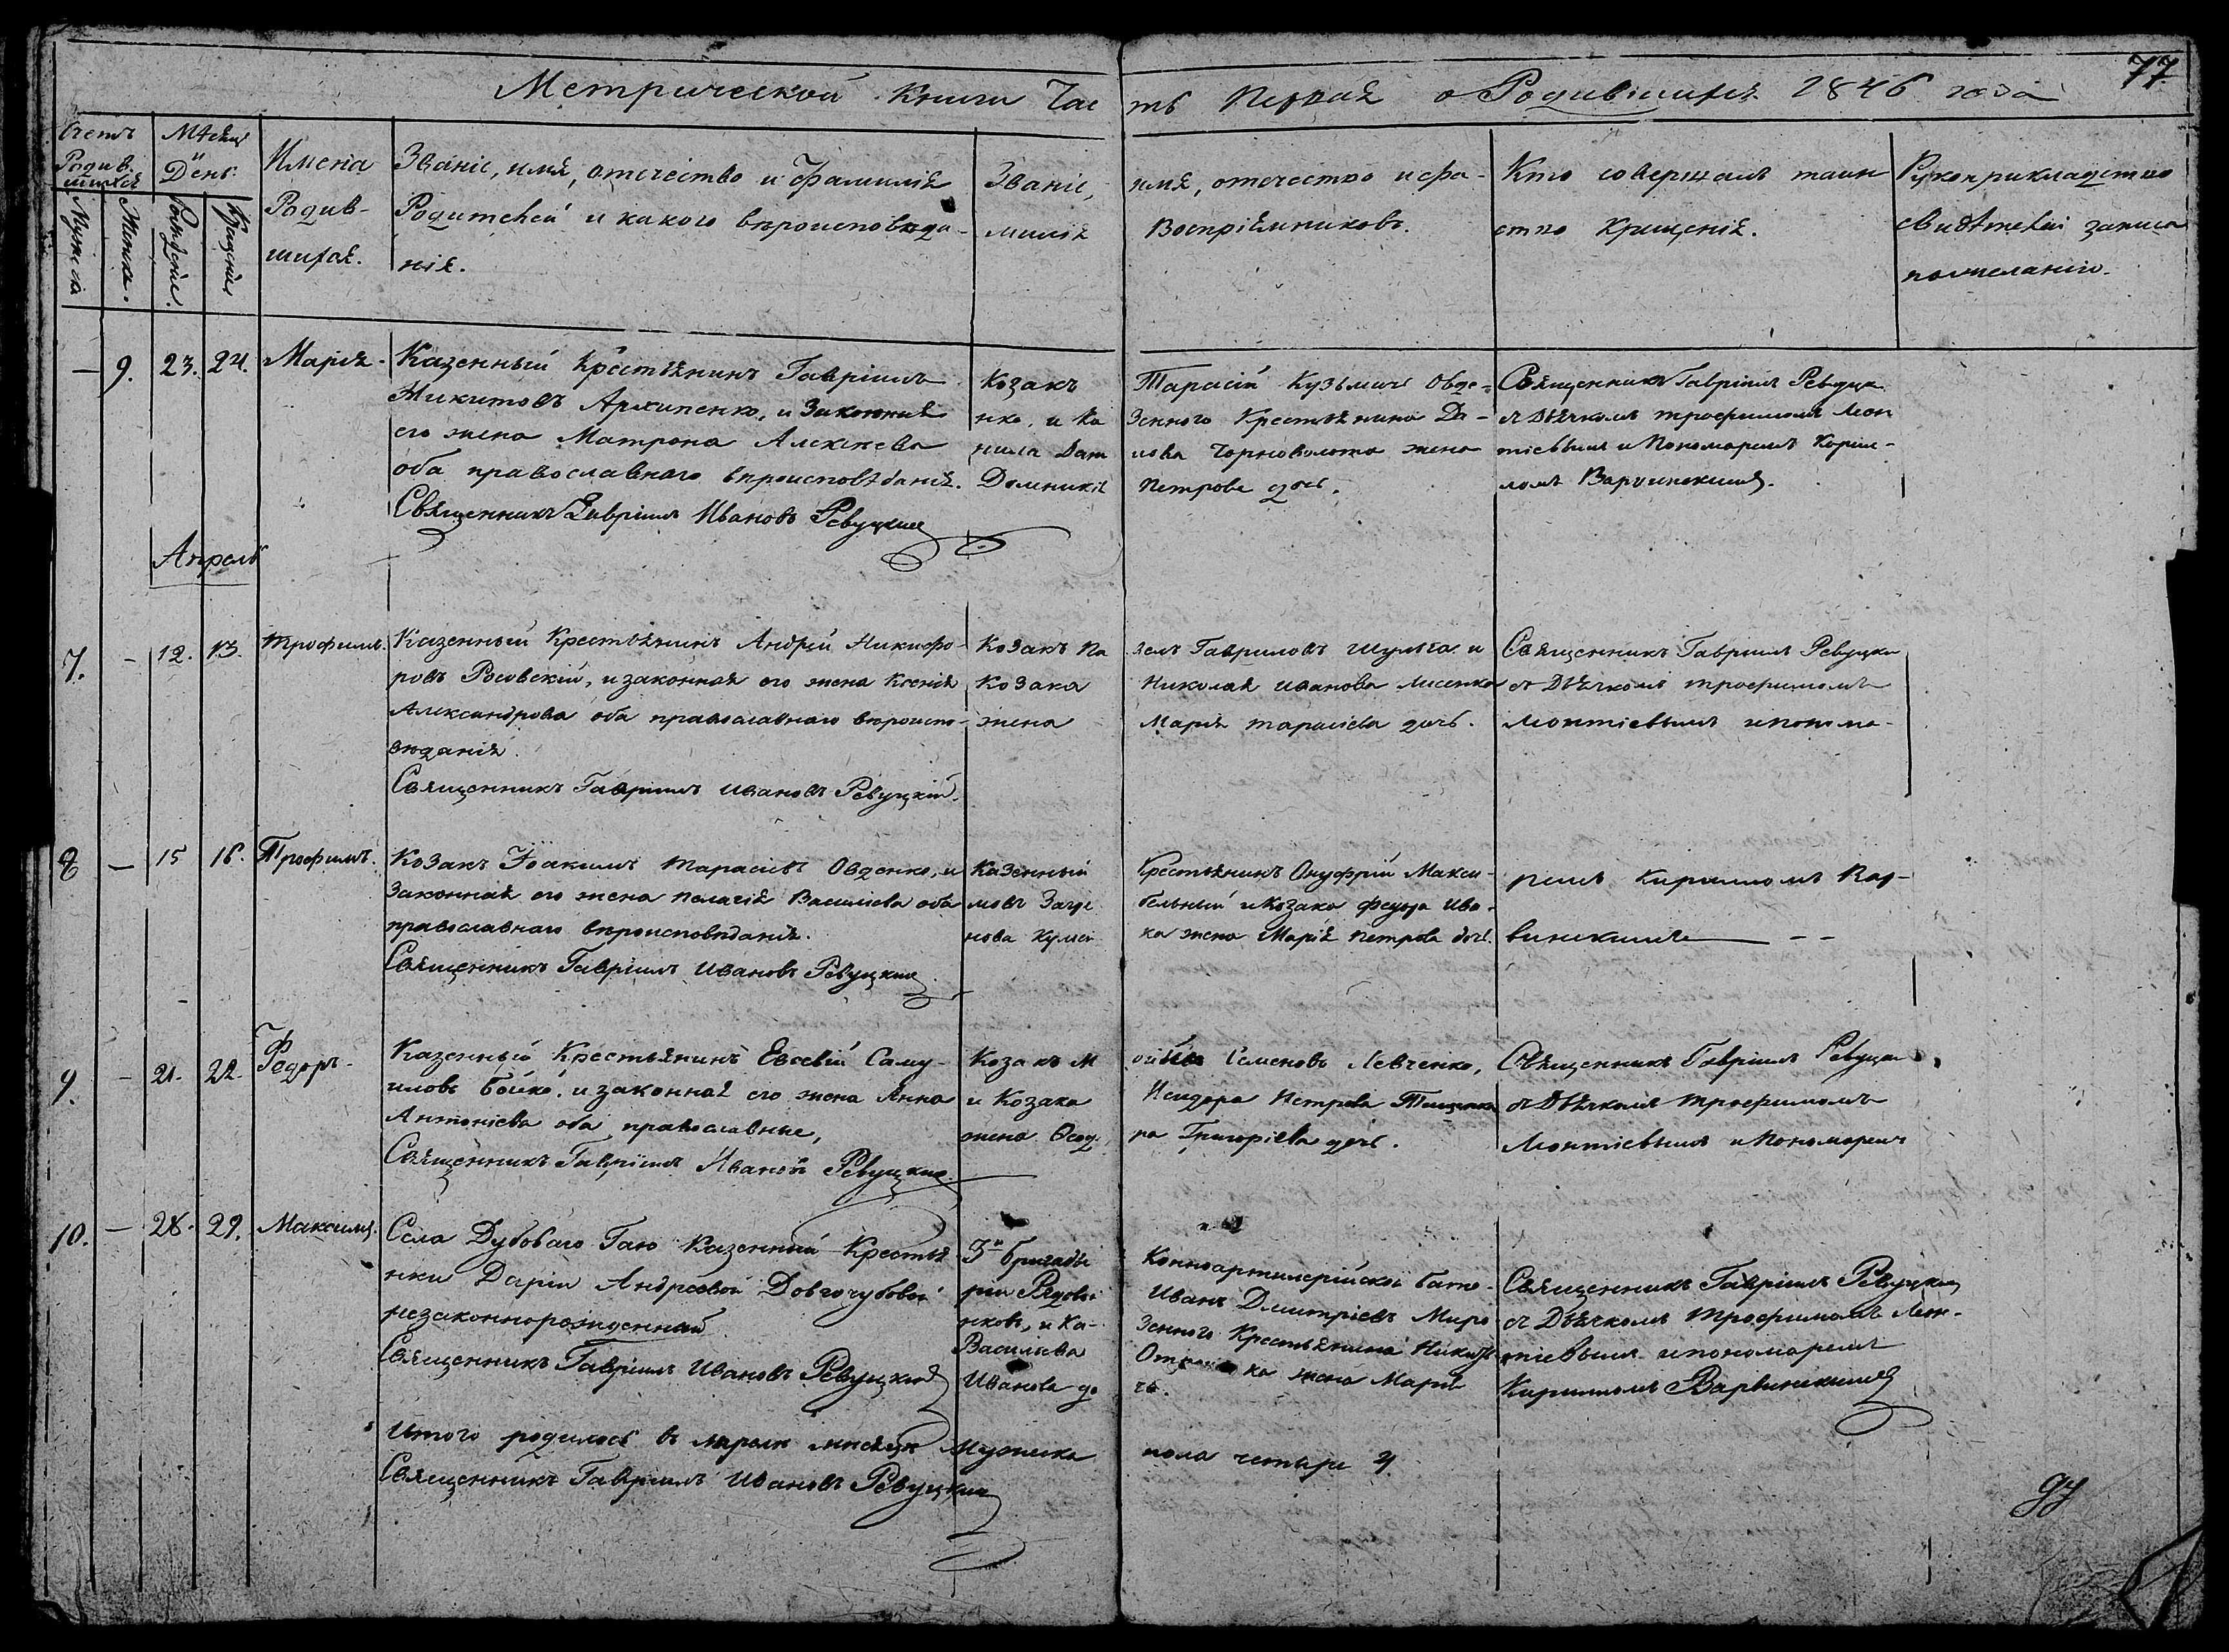 77
Метрической Книги Часть первая о Родившихся 1846 года
Счетъ Родившихся
Мѣсяцъ и День
Имена Родившихся.
Званіе, имя, отечество и фамилія
Родителей и какого вѣроисповѣда-
нія.
Званіе, имя, отечество и фа-
милія Воспріемниковъ.
Кто совершалъ таин
ство Крещенія.
Рукоприкладство
свидѣтелей записи
по желанію.
Мужеска
Женска.
Рожденія.
Крещенія
— 9. 23. 24. Марія
Казенный Крестьянинъ Гавріилъ
Никитовъ Архипенко, и Законная
его жена Матрона Алексѣева
оба православнаго вѣроисповѣданія.
Священникъ Гавріилъ Ивановъ Ревуцкий
Козакъ Тарасій Кузьмичъ Овде-
нко, и Казенного Крестьянина Да-
нила Дат
Домникія Петрова дочь.
Священникъ Гавріилъ Ревуцк
съ Дьячкомъ Трофимомъ Леон
тіевымъ и Пономаремъ Кирил-
ломъ
Апрель
7. — 12. 13. Трофимъ.
Казенный Крестьянинъ Андрій Никифо-
ровъ Росовскій, и законная его жена Ксенія
Александрова оба православнаго вѣроиспо-
вѣданія.
Священникъ Гавріилъ Ивановъ Ревуцкій.
Козакъ Павелъ Гавриловъ Шульга и
Козака Николая Иванова Лисенка
жена Марія Тарасіева дочь.
Священникъ Гавріилъ Ревуцки
съ Дьячкомъ Трофимомъ
Леонтіевымъ и понома-
8 — 15 16. Трофимъ.
Козакъ Іоакимъ Тарасіевъ Овденко, и
Законная его жена Пелагія Василіева оба
православнаго вѣроисповѣданія.
Священникъ Гавріилъ Ивановъ Ревуцкий
Казенный Крестьянинъ Онуфрій Макси-
мовъ и Козака Федора Ива-
нова жена Марія Петрова доч.
ремъ Кирилломъ Вар-
винскимъ — —
9. — 21. 22. Федоръ
Казенный Крестьянинъ Евсевій Саму-
иловъ Бойко, и законная его жена Анна
Антоніева оба православные,
Священникъ Гавріилъ Ивановъ Ревуцкий
Козакъ Моисей Семеновъ Левченко,
и Козака Исидора Петрова
жена Григоріева дочь.
Священникъ Гавріилъ Ревуцки
съ Дьячкомъ Трофимомъ
Леонтіевымъ и Пономарем
10. — 28. 29. Максимъ.
Села Дубоваго Гаю Казенной Крестья
нки Даріи Андреевой Довгочубовой
незаконнорожденный
Священникъ Гавріилъ Ивановъ Ревуцкий
3й бригады Конноартилерійской бата-
реи Рядовой Иванъ Дмитріевъ Миро
нковъ, и Казенного Крестьянина Никиты
Василіева жена Марія
Иванова дочь.
Священникъ Гавріилъ Ревуцкий
съ Дьячкомъ Трофимомъ Леон-
тіевымъ и пономаремъ
Кирилломъ Варвинскимъ
Итого родилось в апрели мѣсяцѣ Мужеска пола четыре 4
Священникъ Гавріилъ Ивановъ Ревуцкий